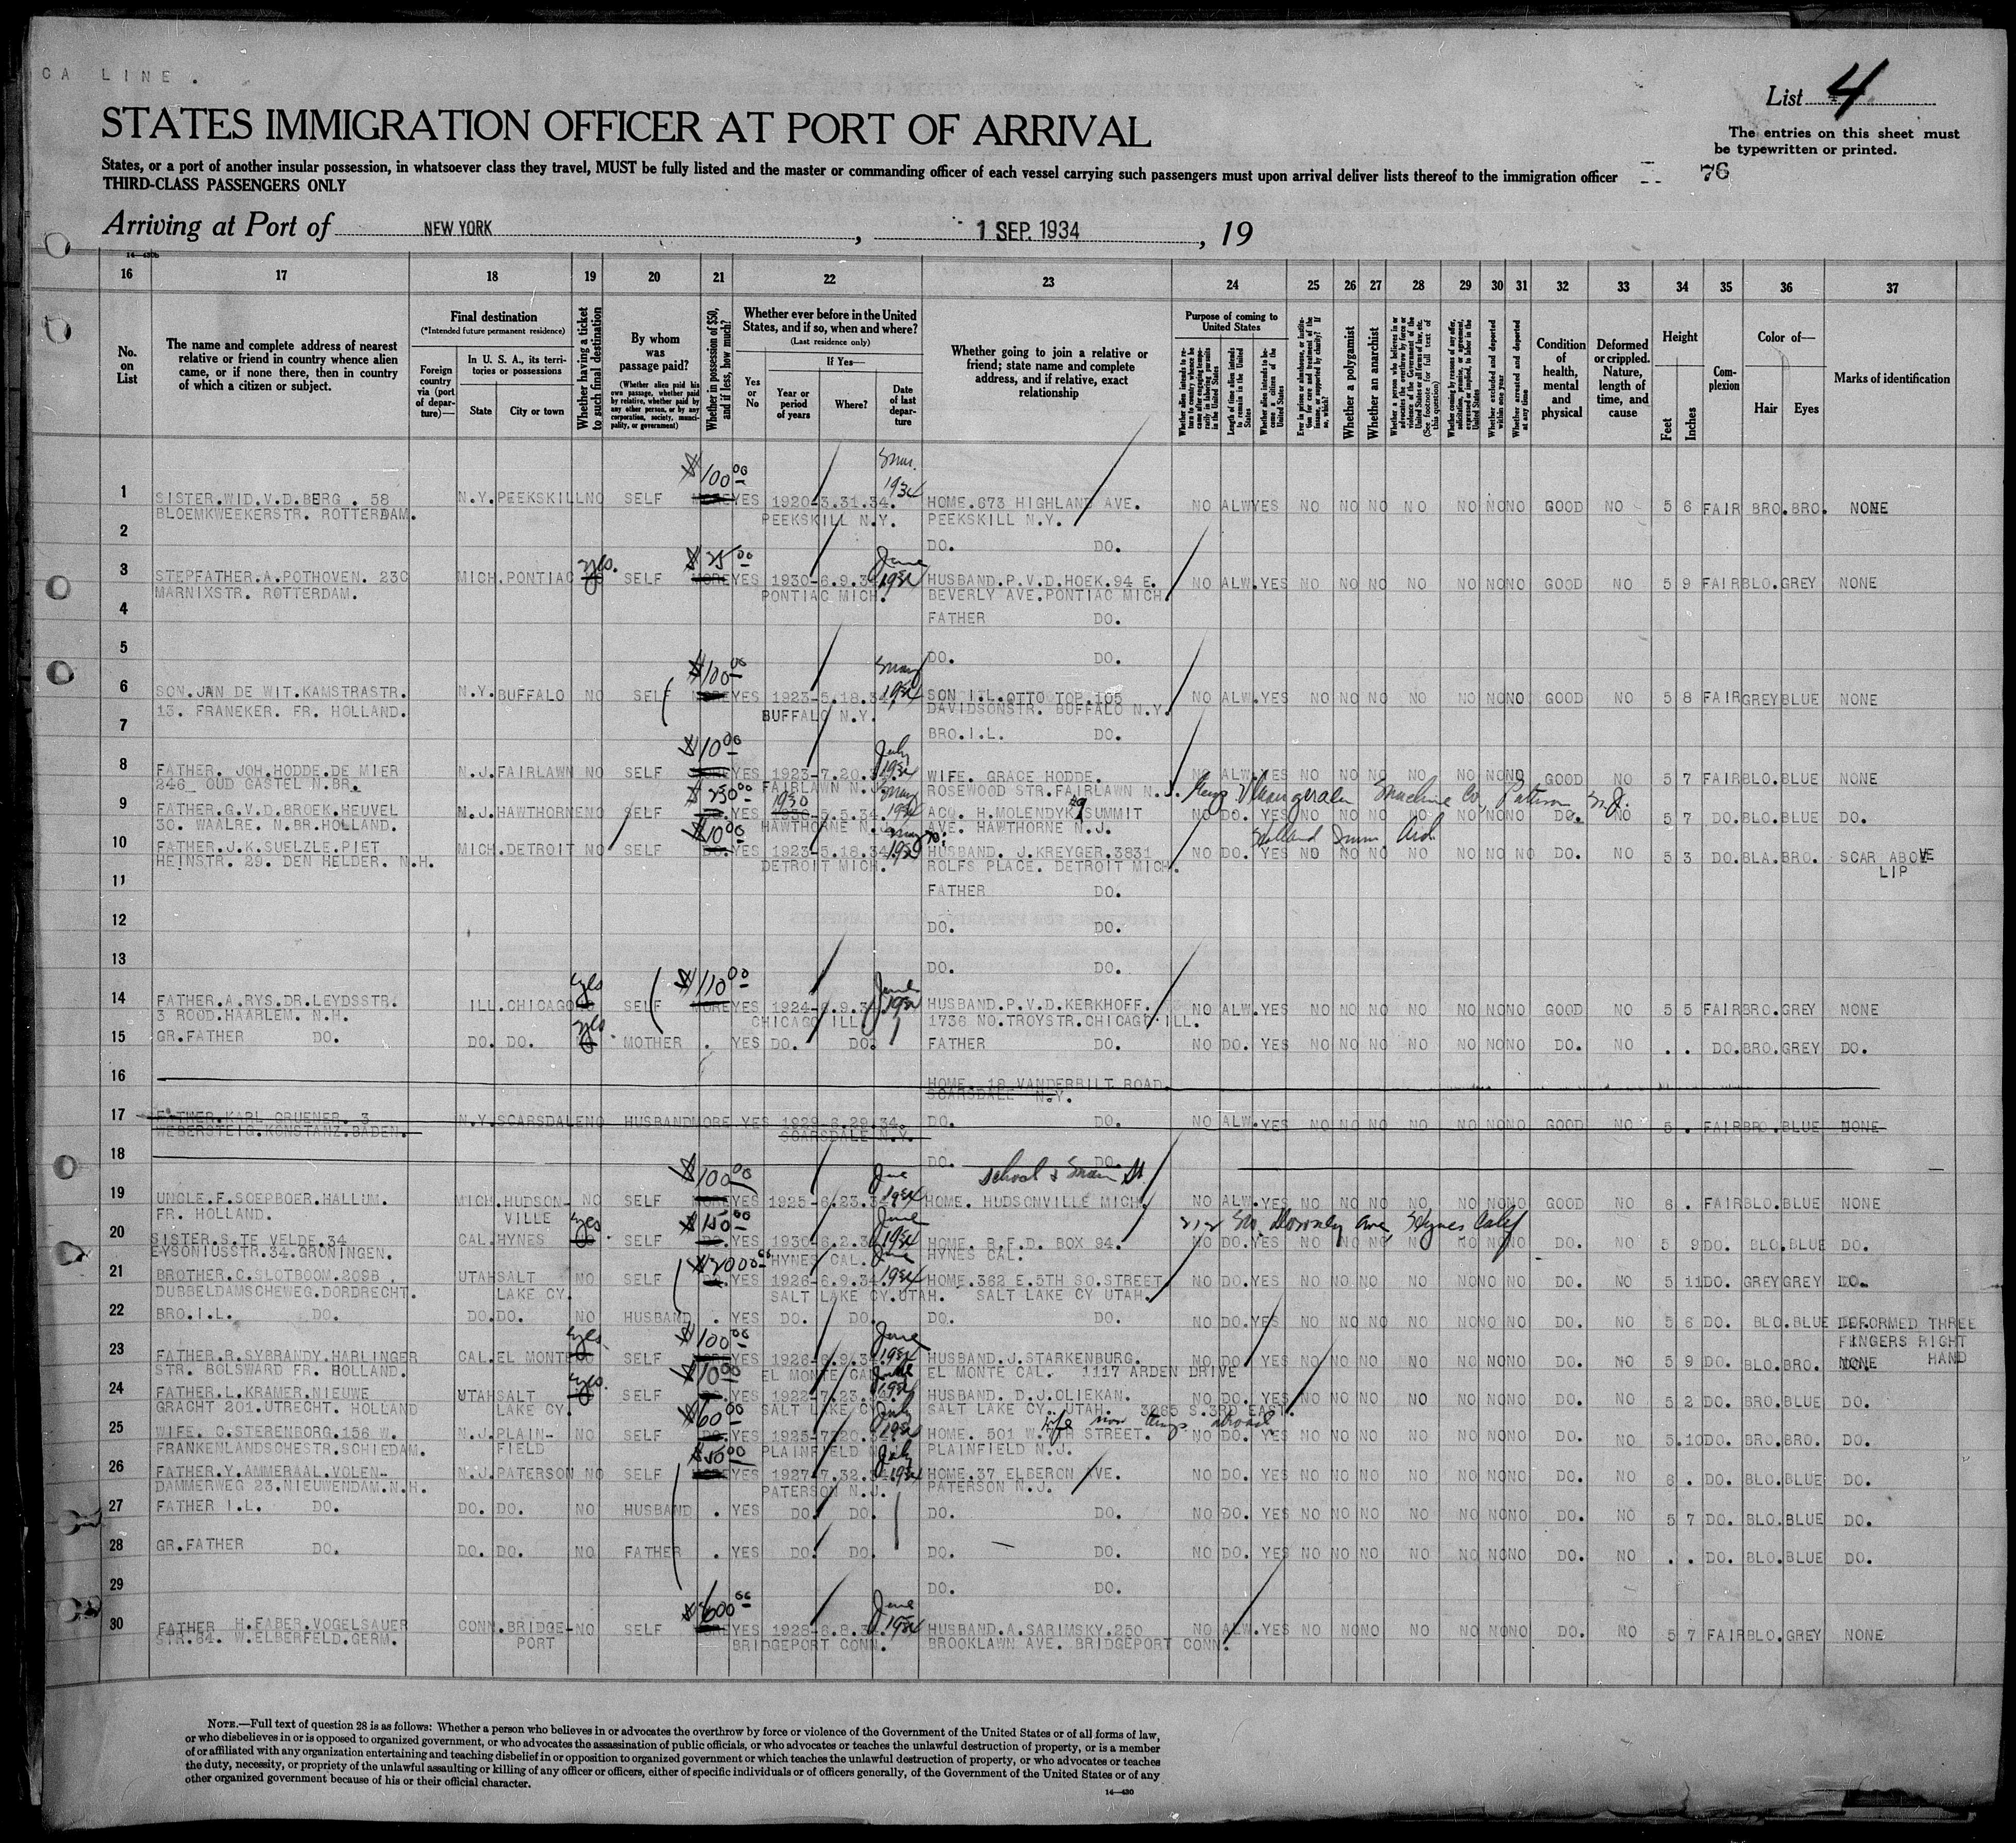 CA LINE.
List 4
STATES IMMIGRATION OFFICER AT PORT OF ARRIVAL
The entries on this sheet must
be typewritten or printed.
States, or a port of another insular possession, in whatsoever class they travel, MUST be fully listed and the master or commanding officer of each vessel carrying such passengers must upon arrival deliver lists thereof to the immigration officer
76
THIRD-CLASS PASSENGERS ONLY
Arriving at Port of NEW YORK, 1 SEP. 1934, 19
14—430b
16 17 18 19 20 21 22 23 24 25 26 27 28 29 30 31 32 33 34 35 36 37
No. on List
The name and complete address of nearest relative or friend in country whence alien came, or if none there, then in country of which a citizen or subject.
Final destination
(*Intended future permanent residence)
Foreign country via (port of departure)—
In U. S. A., its territories or possessions
State
City or town
Whether having a ticket to such final destination
By whom was passage paid?
(Whether alien paid his own passage, whether paid by relative, whether paid by any other person, or by any corporation, society, municipality, or government)
Whether in possession of $50, and if less, how much?
Whether ever before in the United States, and if so, when and where?
(Last residence only)
Yes or No
If Yes—
Year or period of years
Where?
Date of last departure
Whether going to join a relative or friend; state name and complete address, and if relative, exact relationship
Purpose of coming to United States
Whether alien intends to return to country whence he came after engaging temporarily in laboring pursuits in the United States
Length of time alien intends to remain in the United States
Whether alien intends to become a citizen of the United States
Ever in prison or almshouse, or institution for care and treatment of the insane, or supported by charity? If so, which?
Whether a polygamist
Whether an anarchist
Whether a person who believes in or advocates the overthrow by force or violence of the Government of the United States or all forms of law, etc. (See footnote for full text of this question)
Whether coming by reasons of any offer, solicitation, promise, or agreement, expressed or implied, to labor in the United States
Whether excluded and deported within one year
Whether arrested and deported at any time
Condition of health, mental and physical
Deformed or crippled. Nature, length of time, and cause
Height
Feet
Inches
Complexion
Color of—
Hair
Eyes
Marks of identification
$100 00 1934
1 SISTER.WID.V.D.BERG . 58 N.Y. PEEKSKILL NO SELF MORE YES 1920-3.31.34. HOME.673 HIGHLAND AVE. NO ALW YES NO NO NO NO NO NO NO GOOD NO 5 6 FAIR BRO.BRO. NONE
BLOEMKWEEKERSTR. ROTTERDAM. PEEKSKILL N.Y. PEEKSKILL N.Y.
2 DO. DO.
yes. $25 00 June 1934
3 STEPFATHER.A.POTHOVEN. 23C MICH.PONTIAC NO SELF MORE YES 1930-6.9.34 HUSBAND.P.V.D.HOEK.94 E. NO ALW.YES NO NO NO NO NO NO NO GOOD NO 5 9 FAIR BLO.GREY NONE
MARNIXSTR. ROTTERDAM. PONTIAC MICH. BEVERLY AVE.PONTIAC MICH.
4 FATHER DO.
5 DO. DO.
$100 00 May 1934
6 SON.JAN DE WIT.KAMSTRASTR. N.Y. BUFFALO NO SELF MORE YES 1923-5.18.34. SON I.L.OTTO TOP.105 NO ALW.YES NO NO NO NO NO NO NO GOOD NO 5 8 FAIR GREY BLUE NONE
13. FRANEKER. FR. HOLLAND. BUFFALO N.Y. DAVIDSONSTR. BUFFALO N.Y.
7 BRO.I.L. DO.
$10 00 July 1934
8 FATHER. JOH.HODDE.DE MIER N.J. FAIRLAWN NO SELF MORE YES 1923-7.20.34. WIFE. GRACE HODDE. NO ALW.YES NO NO NO NO NO NO NO GOOD NO 5 7 FAIR BLO.BLUE NONE
246 OUD GASTEL N.BR. FAIRLAWN N.J. ROSEWOOD STR.FAIRLAWN N.J.
$250 00 1930 May 1934 Machine Co, Paterson N.J.
9 FATHER.G.V.D.BROEK.HEUVEL N.J. HAWTHORNE NO SELF DO. YES 1930-5.5.34. ACQ. H.MOLENDYK 9 SUMMIT NO DO. YES NO NO NO NO NO NO NO DO. NO 5 7 DO.BLO.BLUE DO.
30. WAALRE. N.BR.HOLLAND. HAWTHORNE N.J. AVE. HAWTHORNE N.J.
$10 00 May 1934 Holland Amm. Arch
10 FATHER.J.K.SUELZLE.PIET MICH.DETROIT NO SELF DO. YES 1923-5.18.34 HUSBAND. J.KREYGER.3831 NO DO. YES NO NO NO NO NO NO NO DO. NO 5 3 DO. BLA.BRO. SCAR ABOVE
HEINSTR. 29. DEN HELDER. N.H. DETROIT MICH. ROLFS PLACE. DETROIT MICH. LIP
11 FATHER DO.
12 DO. DO.
13 DO. DO.
yes $110 00 June 1934
14 FATHER.A.RYS.DR.LEYDSSTR. ILL.CHICAGO NO SELF MORE YES 1924-6.9.34 HUSBAND.P.V.D.KERKHOFF. NO ALW.YES NO NO NO NO NO NO NO GOOD NO 5 5 FAIR BRO.GREY NONE
3 ROOD.HAARLEM. N.H. CHICAGO ILL. 1736 NO.TROYSTR.CHICAGO ILL.
yes
15 GR.FATHER DO. DO. DO. MOTHER . YES DO. DO. FATHER DO. NO DO. YES NO NO NO NO NO NO NO DO. NO . . DO.BRO.GREY DO.
16 HOME. 18 VANDERBILT ROAD.
SCARSDALE N.Y.
17 FATHER.KARL GRUENER. 3 N.Y. SCARSDALE NO HUSBAND MORE YES 1929-8.29.34. DO. DO. NO ALW.YES NO NO NO NO NO NO NO GOOD NO 5 . FAIR BRO.BLUE NONE
WEBERSTEIG.KONSTANZ.BADEN. SCARSDALE N.Y.
18 DO. DO.
$100 00 1934 School & Main St.
19 UNCLE.F.SOEPBOER.HALLUM. MICH.HUDSON- NO SELF MORE YES 1925-6.23.34 HOME. HUDSONVILLE MICH. NO ALW.YES NO NO NO NO NO NO NO GOOD NO 6 . FAIR BLO.BLUE NONE
FR. HOLLAND. VILLE
yes $150 00 June 1934 212 So. Downey Ave, Hynes Calif
20 SISTER.S.TE VELDE.34 CAL.HYNES NO SELF DO. YES 1930-6.2.34 HOME. R.F.D. BOX 94. NO DO.YES NO NO NO NO NO NO NO DO. NO 5 9 DO. BLO.BLUE DO.
EYSONIUSSTR.34.GRONINGEN. HYNES CAL. HYNES CAL.
$2000 00 June 1934
21 BROTHER.C.SLOTBOOM.209B UTAH SALT NO SELF DO. YES 1926-6.9.34 HOME.362 E.5TH SO.STREET NO DO.YES NO NO NO NO NO NO NO DO. NO 5 11 DO. GREY GREY DO.
DUBBELDAMSCHEWEG.DORDRECHT. LAKE CY. SALT LAKE CY.UTAH. SALT LAKE CY UTAH.
22 BRO.I.L. DO. DO.DO. NO HUSBAND . YES DO. DO. DO. DO. NO DO.YES NO NO NO NO NO NO NO DO. NO 5 6 DO. BLO.BLUE DEFORMED THREE
FINGERS RIGHT
HAND
yes $100 00 June 1934
23 FATHER.R.SYBRANDY.HARLINGER CAL.EL MONTE NO SELF YES 1926-6.9.34 HUSBAND.J.STARKENBURG. NO DO. YES NO NO NO NO NO NO NO DO. NO 5 9 DO. BLO.BRO. NONE
STR. BOLSWARD FR. HOLLAND. EL MONTE CAL. EL MONTE CAL. 1117 ARDEN DRIVE
yes. $10 00 1934
24 FATHER.L.KRAMER.NIEUWE UTAH SALT NO SELF DO. YES 1922-7.23.34 HUSBAND. D.J.OLIEKAN. NO DO. YES NO NO NO NO NO NO NO DO. NO 5 2 DO. BRO.BLUE DO.
GRACHT 201.UTRECHT. HOLLAND LAKE CY. SALT LAKE CY. SALT LAKE CY. UTAH. 3065 S.3RD EAST.
$60 00 July 1934 wife now abroad
25 WIFE. C.STERENBORG.156 W. N.J. PLAIN- NO SELF DO. YES 1925-7.20.34 HOME. 501 W. STREET. NO DO. YES NO NO NO NO NO NO NO DO. NO 5.10 DO. BRO.BRO. DO.
FRANKENLANDSCHESTR.SCHIEDAM. FIELD PLAINFIELD N.J. PLAINFIELD N.J.
$50 00 July 1934
26 FATHER.Y.AMMERAAL.VOLEN- N.J. PATERSON NO SELF MORE YES 1927-7.32.34 HOME.37 ELBERON AVE. NO DO. YES NO NO NO NO NO NO NO DO. NO 6 . DO. BLO.BLUE DO.
DAMMERWEG 23.NIEUWENDAM.N.H. PATERSON N.J. PATERSON N.J.
27 FATHER I.L. DO. DO. DO. NO HUSBAND . YES DO. DO. DO. DO. NO DO. YES NO NO NO NO NO NO NO DO. NO 5 7 DO. BLO.BLUE DO.
28 GR.FATHER DO. DO. DO. NO FATHER . YES DO. DO. DO. DO. NO DO. YES NO NO NO NO NO NO NO DO. NO . . DO. BLO.BLUE DO.
29 DO. DO.
$600 00 June 1934
30 FATHER H.FABER.VOGELSAUER CONN.BRIDGE- NO SELF MORE YES 1928-6.8.34 HUSBAND.A.SARIMSKY.250 NO ALW.YES NO NO NO NO NO NO NO DO. NO 5 7 FAIR BLO.GREY NONE
STR.64. W.ELBERFELD.GERM. PORT BRIDGEPORT CONN. BROOKLAWN AVE. BRIDGEPORT CONN.
NOTE.—Full text of question 28 is as follows: Whether a person who believes in or advocates the overthrow by force or violence of the Government of the United States or of all forms of law,
or who disbelieves in or is opposed to organized government, or who advocates the assassination of public officials, or who advocates or teaches the unlawful destruction of property, or is a member
of or affiliated with any organization entertaining and teaching disbelief in or opposition to organized government or which teaches the unlawful destruction of property, or who advocates or teaches
the duty, necessity, or propriety of the unlawful assaulting or killing of any officer or officers, either of specific individuals or of officers generally, of the Government of the United States or of any
other organized government because of his or their official character.
14—430